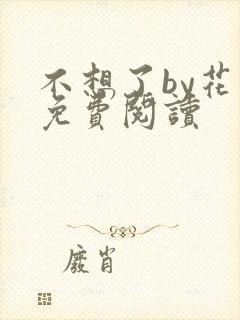 不想了by花
免費閱讀
廢肖